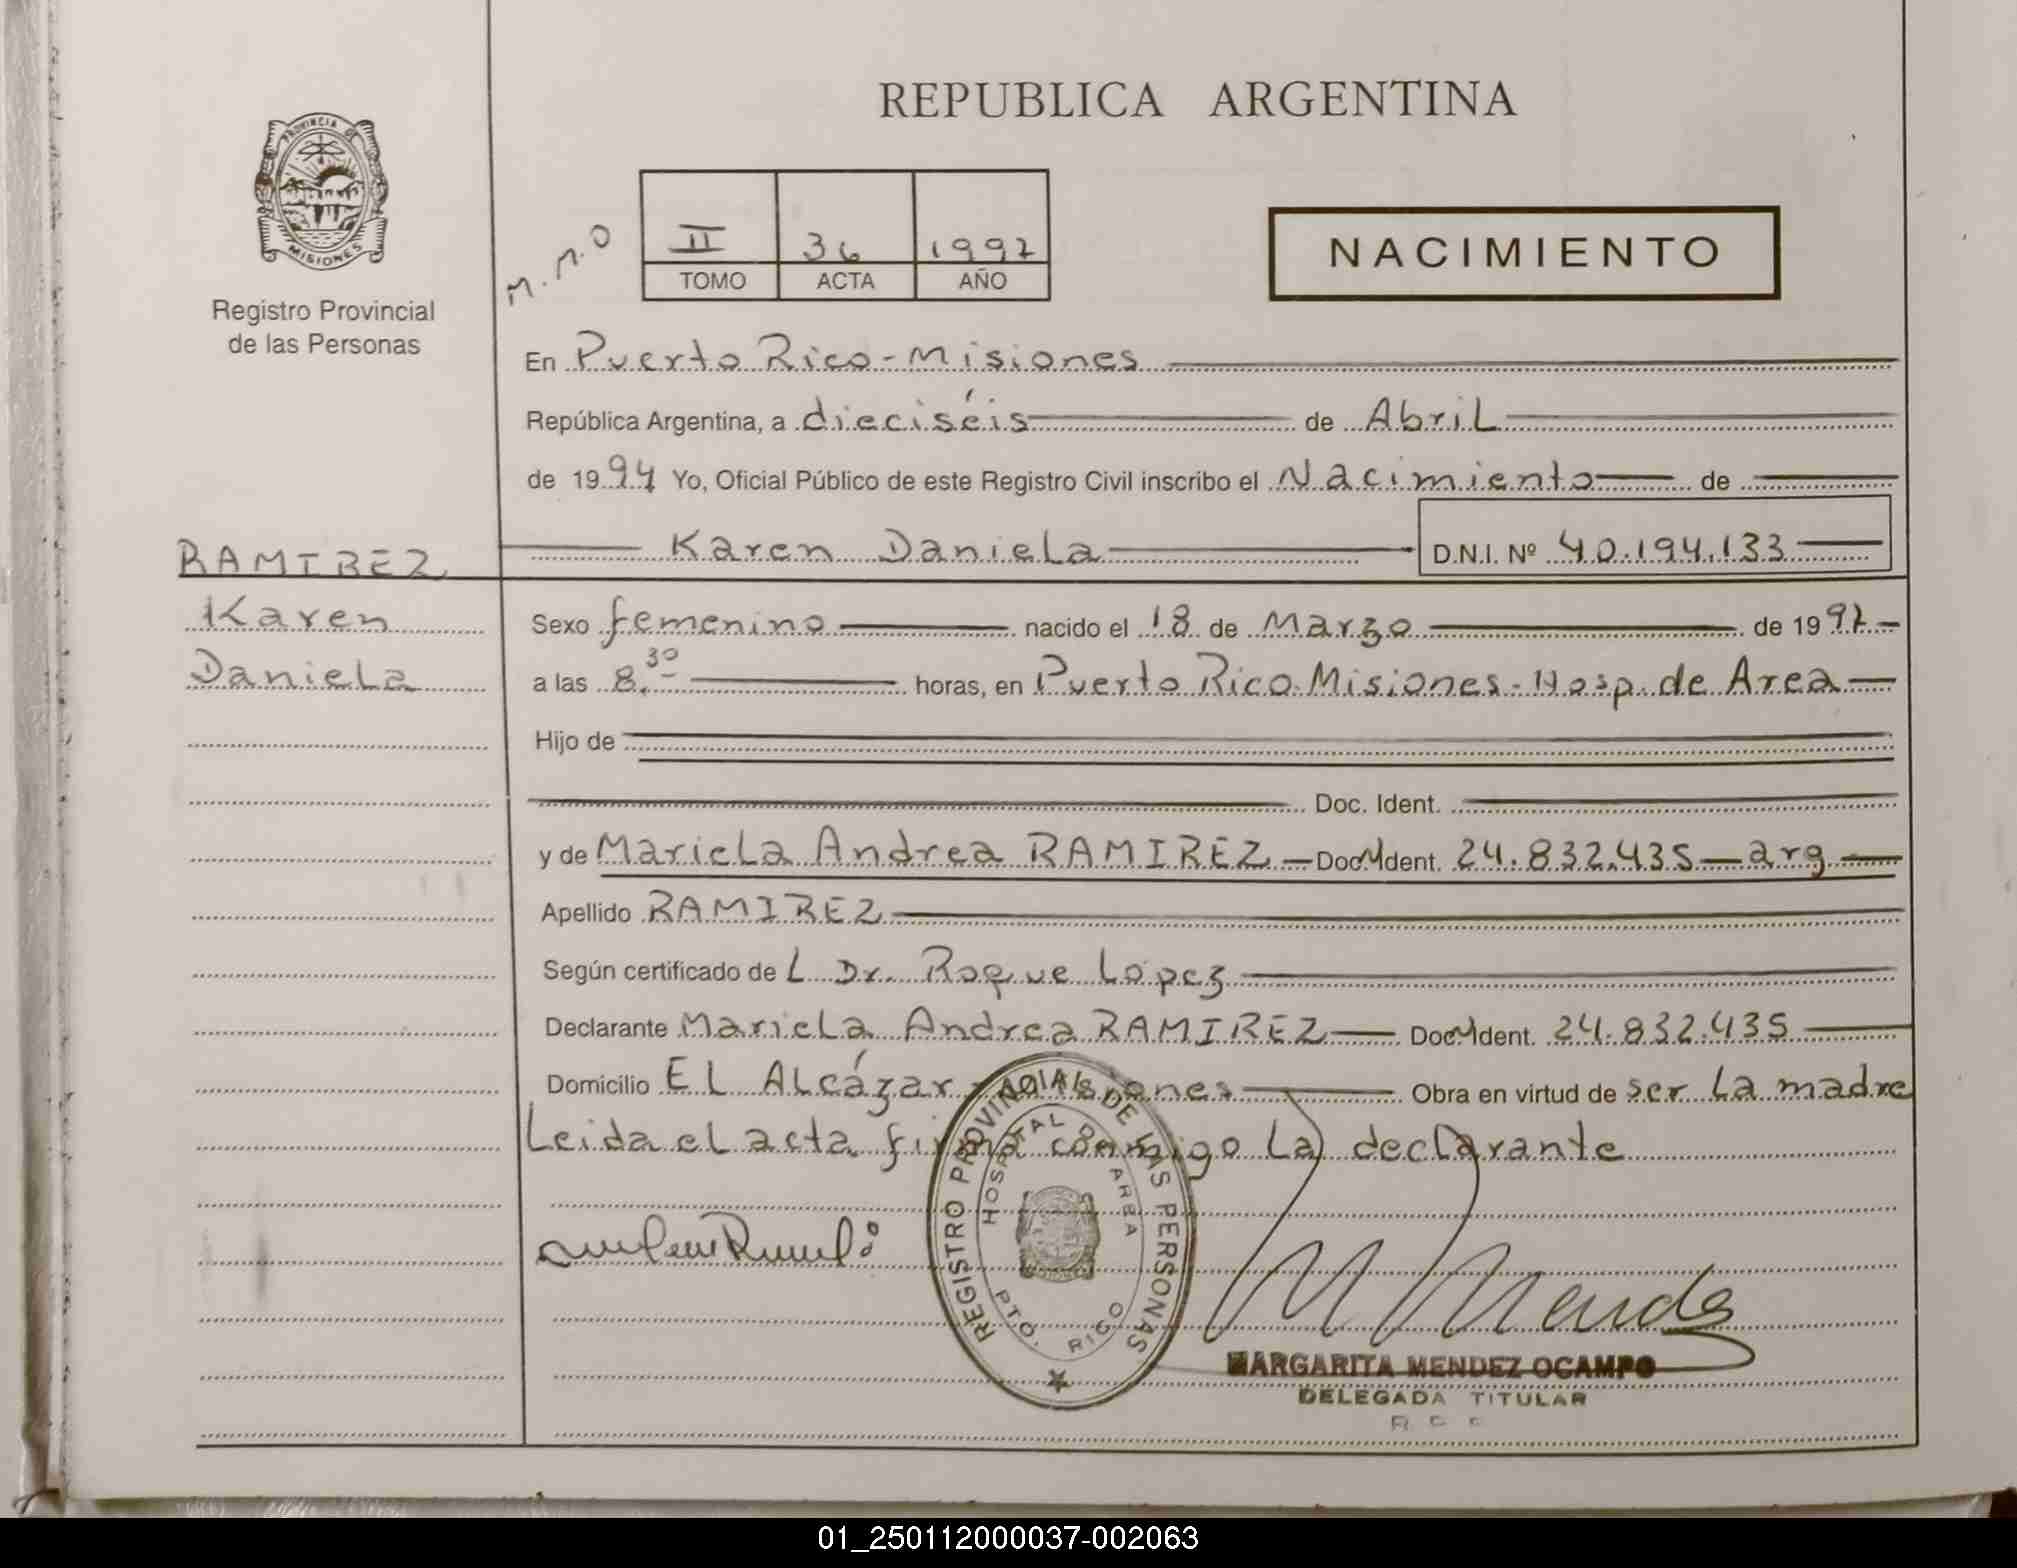 REPUBLICA ARGENTINA
PROVINCIA DE
MISIONES
Registro Provincial
de las Personas
M.M.O
II 36 1997
TOMO ACTA AÑO
NACIMIENTO
En Puerto Rico-Misiones
República Argentina, a dieciséis de Abril
de 1997 Yo, Oficial Público de este Registro Civil inscribo el Nacimiento de
RAMIREZ
Karen Daniela D.N.I. Nº 40.194.133
Karen
Sexo femenino nacido el 18 de Marzo de 1997
Daniela
a las 8.30 horas, en Puerto Rico-Misiones-Hosp. de Area
Hijo de
Doc. Ident.
y de Mariela Andrea RAMIREZ Doc. Ident. 24.832.435 arg
Apellido RAMIREZ
Según certificado de L Dr. Roque Lopez
Declarante Mariela Andrea RAMIREZ Doc. Ident. 24.832.435
Domicilio El Alcázar-Misiones Obra en virtud de ser la madre
Leida el acta firma conmigo la declarante
REGISTRO PROVINCIAL DE LAS PERSONAS
HOSPITAL DE AREA
PTO. RICO
MARGARITA MENDEZ OCAMPO
DELEGADA TITULAR
01_250112000037-002063